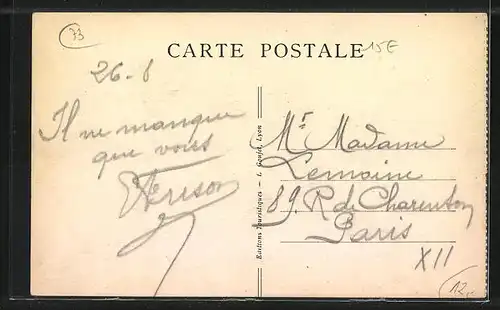 73
CARTE POSTALE
15E
26-8
Il ne manque
que vous
Editions Touristiques — L. Goujet, Lyon
Mr Madame
Lemoine
89. R de Charenton
Paris
XII
12,-